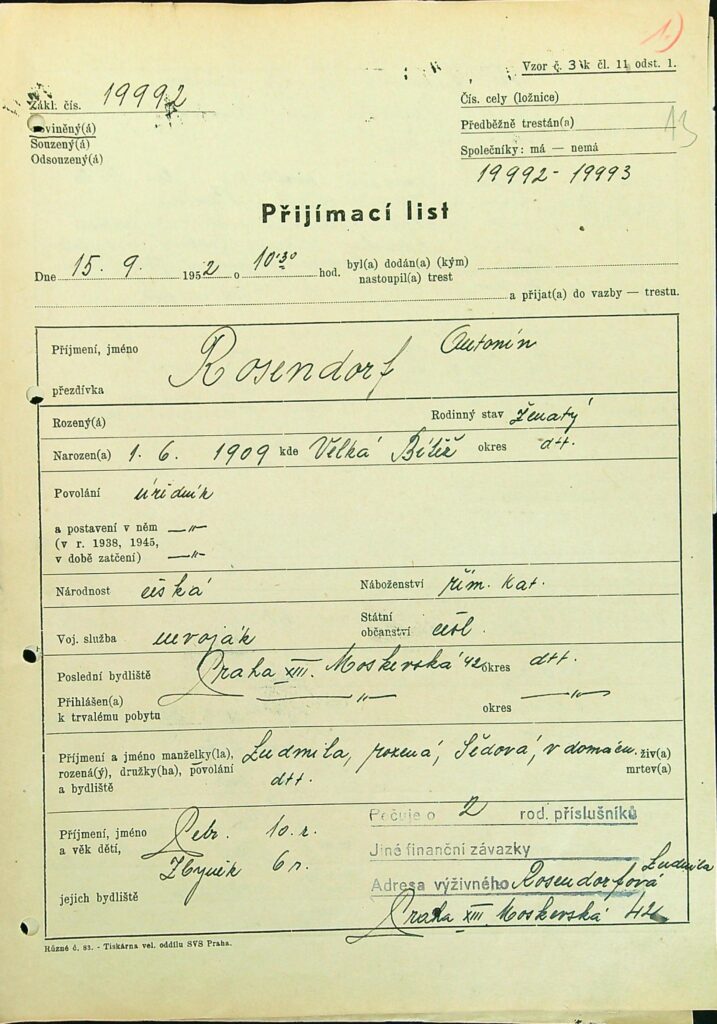 1.)
Vzor č. 3 k čl. 11 odst. 1.
Zákl. čís. 19992
Obviněný(á)
Souzený(á)
Odsouzený(á)
Čís. cely (ložnice)
Předběžně trestán(a)
Společníky: má — nemá
19992 - 19993
Přijímací list
Dne 15. 9. 1952 o 10.30 hod. byl(a) dodán(a) (kým)
nastoupil(a) trest
a přijat(a) do vazby — trestu.
Příjmení, jméno Rosendorf Antonín
přezdívka
Rozený(á) Rodinný stav ženatý
Narozen(a) 1. 6. 1909 kde Velká okres dtt.
Povolání úředník
a postavení v něm —"—
(v r. 1938, 1945,
v době zatčení) —"—
Národnost česká Náboženství řím. kat.
Voj. služba nevoják Státní občanství čsl.
Poslední bydliště Praha XIII. Moskevská 42 okres dtt.
Přihlášen(a)
k trvalému pobytu —"— okres —"—
Příjmení a jméno manželky(la), Ludmila, rozená, Šédová, v domácn. živ(a)
rozená(ý), družky(ha), povolání mrtev(a)
a bydliště dtt.
Příjmení, jméno Petr. 10 r.
a věk dětí, Zbyněk 6 r.
jejich bydliště
Pečuje o 2 rod. příslušníků
Jiné finanční závazky
Adresa výživného Rosendorfová Ludmila
Praha XIII. Moskevská 42
Různé č. 83. - Tiskárna vel. oddílu SVS Praha.